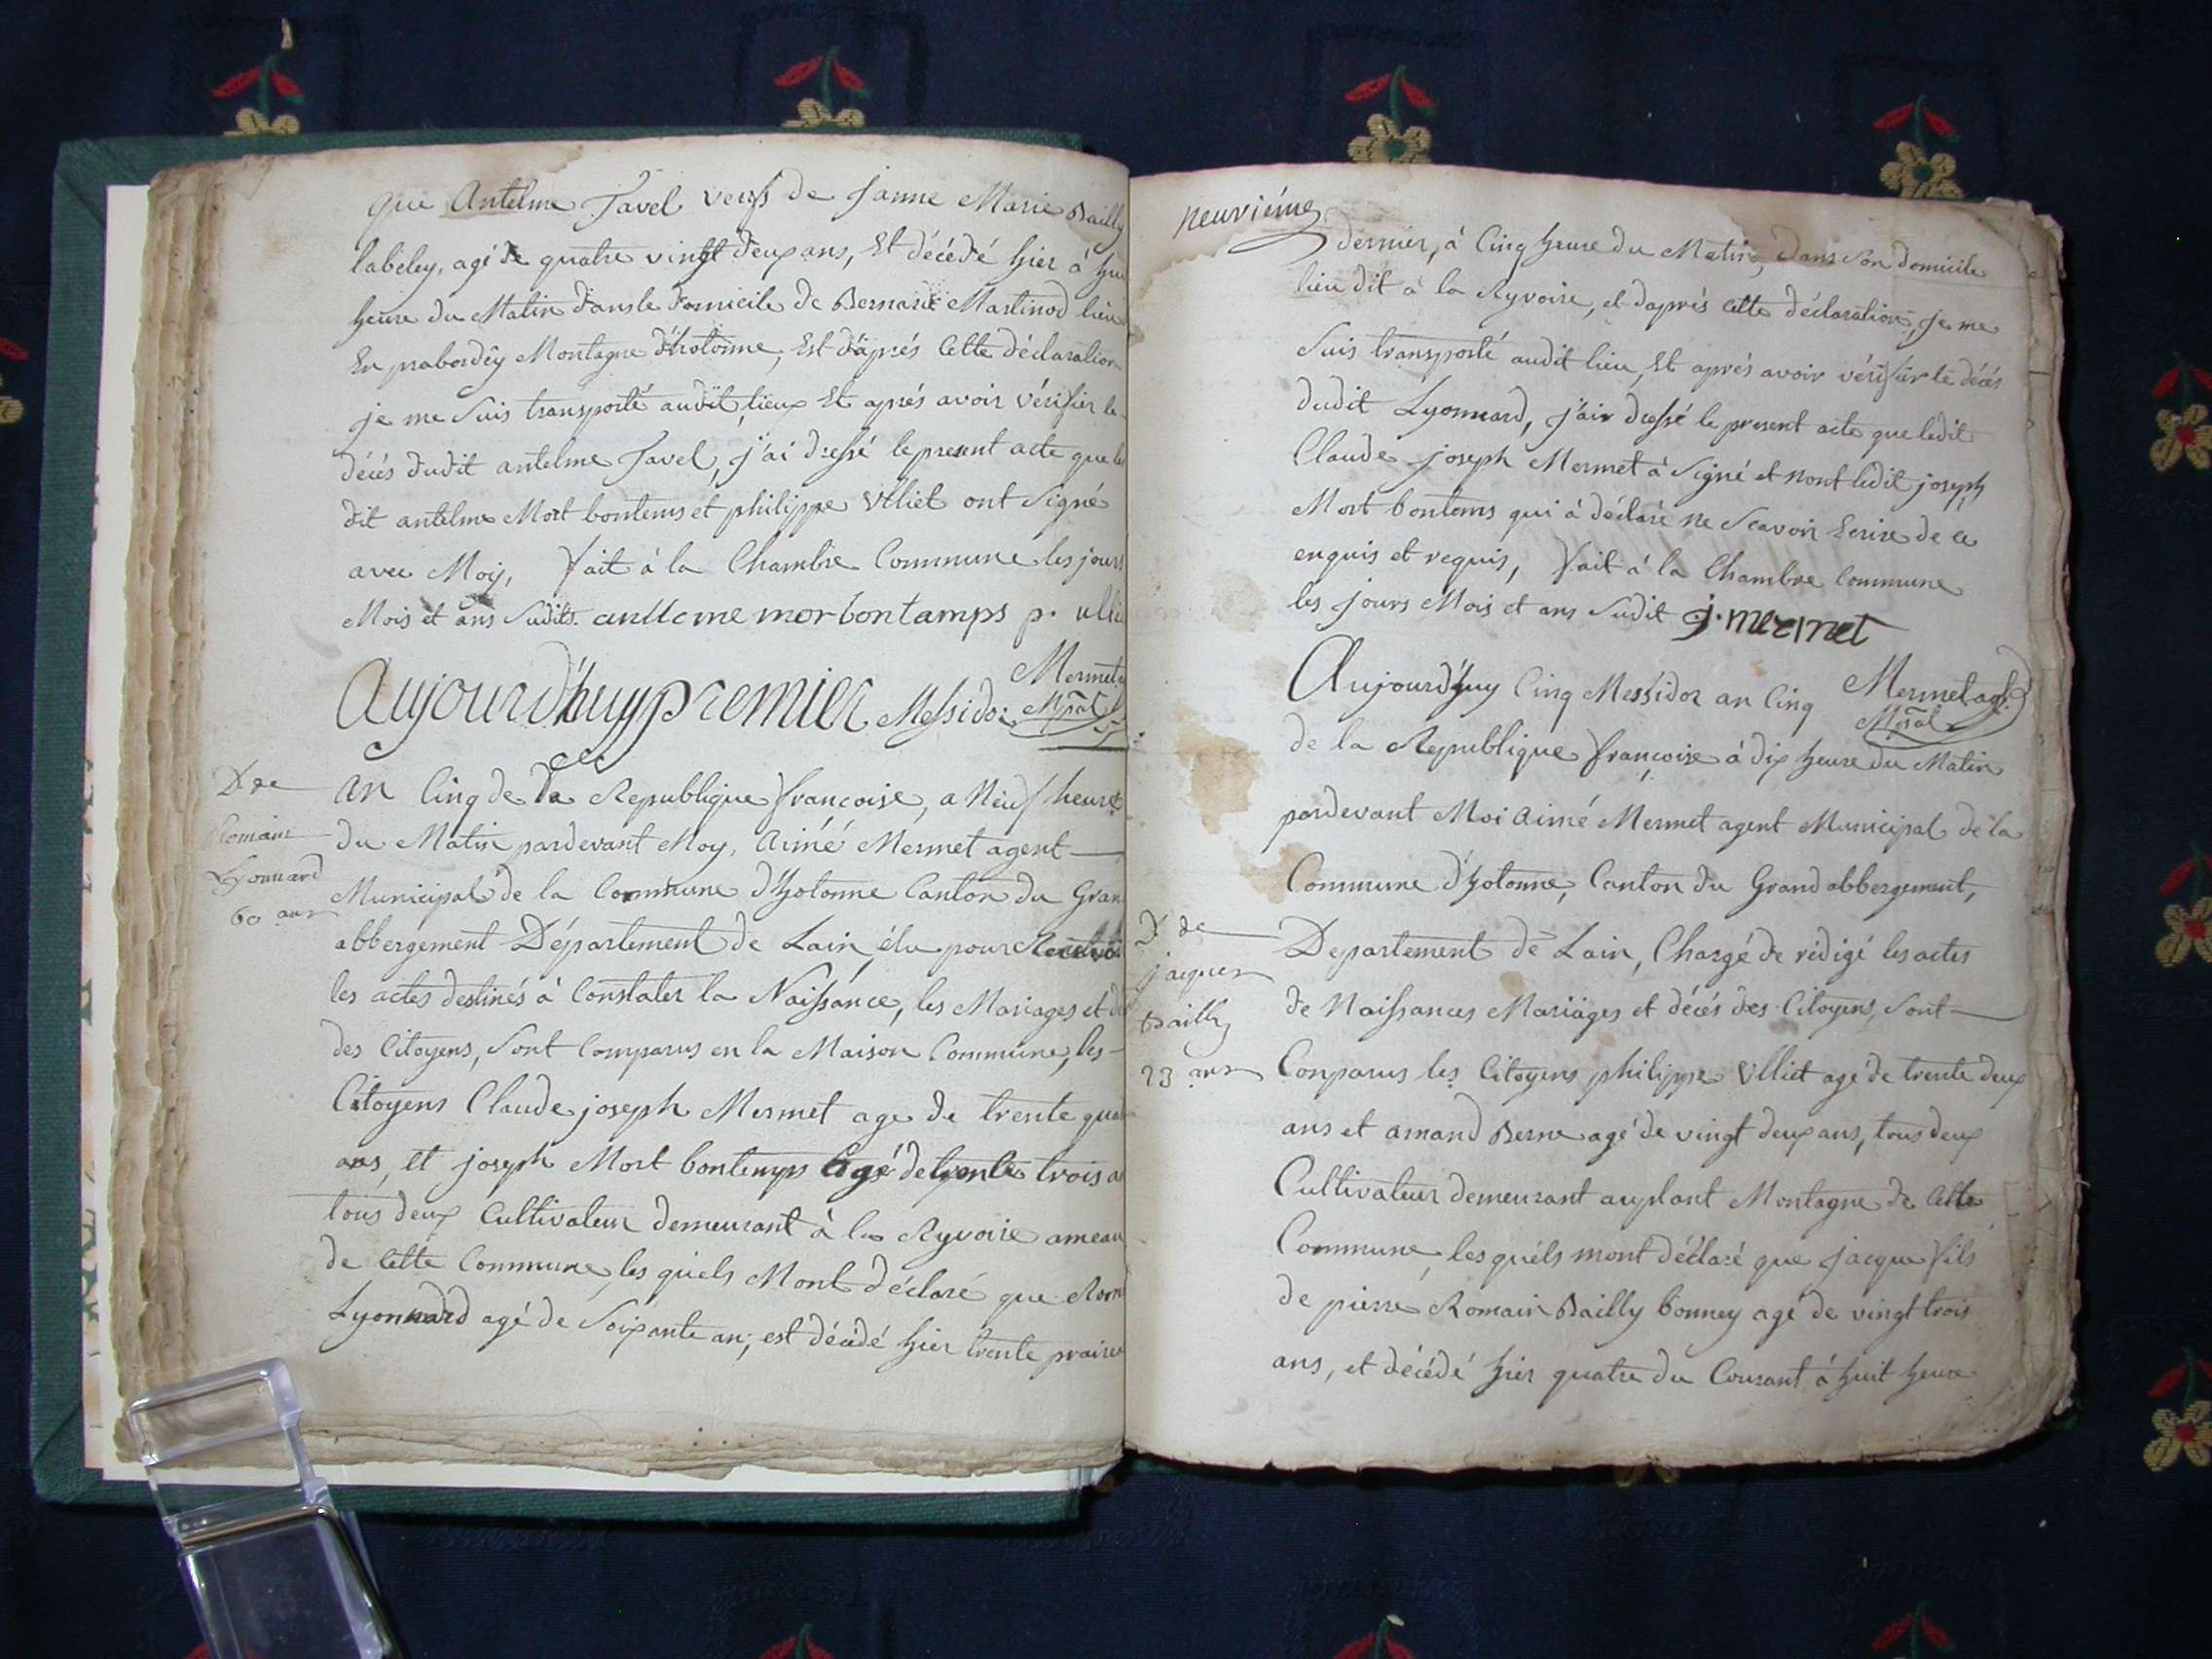 que Antelme Javel veuf de Janne Marie Bailly
labeley, agé de quatre vingt deux ans, Et décédé hier à
heure du Matin dans le domicile de Bernard Martinod lieu
En prabordey Montagne d'hotonne, Est d'après Cette déclaration
je me Suis transporté audit lieux Et après avoir vérifier le
décés dudit antelme Javel, j'ai dressé le present acte que les
dit antelme Mort bontems et philippe Ulliet ont Signé
avec Moy, fait à la Chambre Commune les jours
Mois et ans Sudits. antleme morbontamps p. ulli
Mermet
Mpal
Aujourd'huy premier Messidor
D de
Romain
Lyonnard
60 ans
an Cinq de la Republique françoise, a Neuf heure
du Matin pardevant Moy, Aimé Mermet agent
Municipal de la Commune d'hotonne Canton du Gran
abbergement Département de Lain élu pour
les actes destinés à Constater la Naissance, les Mariages et d
des Citoyens, Sont Comparus en la Maison Commune, les
Citoyens Claude joseph Mermet age de trente qua
ans, et joseph Mort bontemps agé de trente trois a
tous deux Cultivateur demeurant à la Ryvoire ameau
de Cette Commune, les quels Mont déclaré que Rom
Lyonnard agé de Soixante an, est décédé hier trente prairi
neuvième
dernier, à Cinq heure du Matin, dans Son domicile
lieu dit à la Ryvoire, et d'après Cette déclaration, je me
Suis transporté audit lieu, Et après avoir vérifier le décés
dudit Lyonnard, j'air dressé le present acte que ledit
Claude joseph Mermet à Signé et nont ledit joseph
Mort bontems qui à déclaré ne Scavoir Ecrire de ce
enquis et requis, fait à la Chambre Commune
les jours Mois et ans Sudit j. mermet
Mermet agt
Mpal
Aujourd'huy Cinq Messidor an Cinq
de la Republique françoise à dix heure du Matin
pardevant Moi Aimé Mermet agent Municipal de la
Commune d'hotonne, Canton du Grand abbergement,
D de
jacques
Bailly
23 ans
Departement de Lain, Chargé de rédigé les actes
de Naissances Mariages et décés des Citoyens, Sont
Conparus les Citoyens philippe Ulliet agé de trente deux
ans et amand Berne agé de vingt deux ans, tous deux
Cultivateur demeurant au plant Montagne de Cette
Commune, les quéls mont déclaré que jacque fils
de pierre Romain Bailly bonney agé de vingt trois
ans, et décédé hier quatre du Courant à huit heure